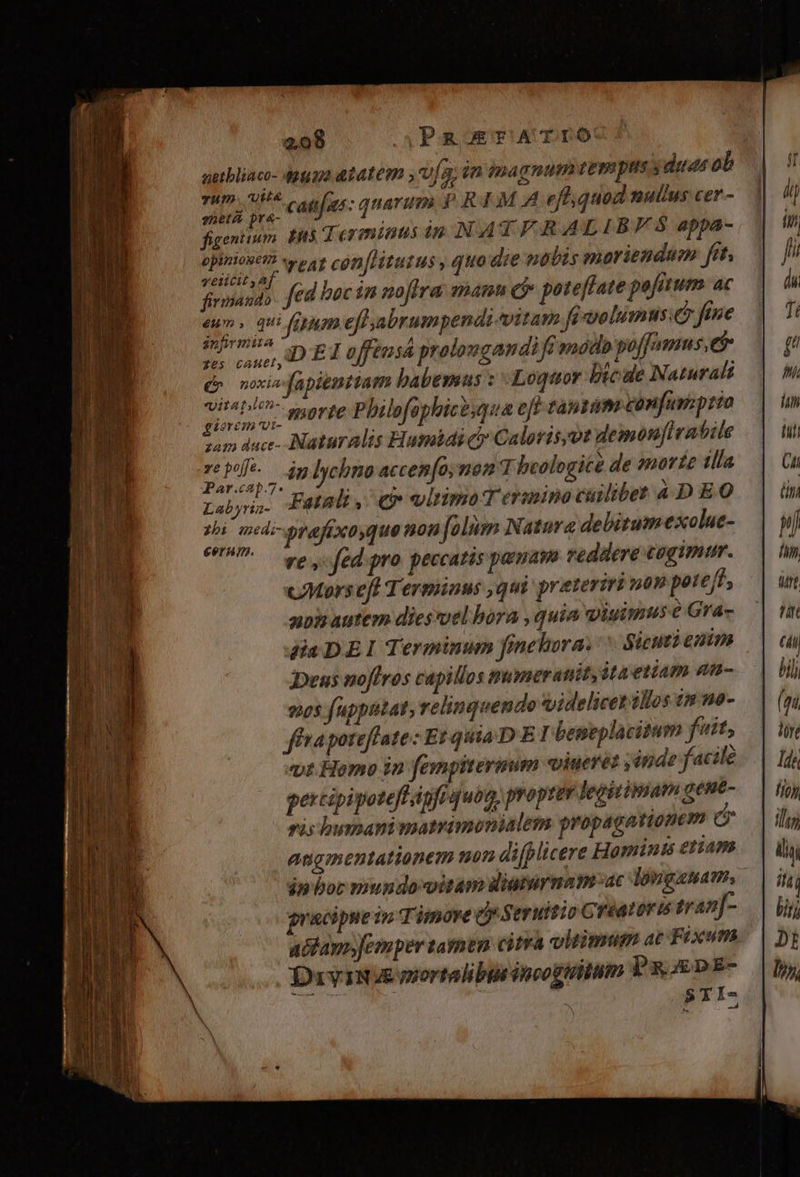 208 PRÆFATIO
nethliaco-
rum, vitæ
metã præ-
figentium
opinionem
reiicit, aſ-
firmando
eum, qui
infirmita-
tes cauet,
& noxia
vitat, lon-
giorem vi-
tam duce-
re poſſe.
Par.cap.7.
Labyrin-
thi medi-
corum.
mum ætatem, vſq; in magnum tempus, duas ob
cauſas: quarum PRIMA eſt, quod nullus cer-
tus Terminus in NATVRALIBVS appa-
reat conſtitutus, quo die nobis moriendum ſit,
ſed hoc in noſtra manu & poteſtate poſitum ac
ſitum eſt, abrumpendi vitam ſi volumus: & ſine
DEI offensâ prolongandi ſi modò poſſumus, &
ſapientiam habemus: Loquor hîc de Naturali
morte Philoſophicè, quæ eſt tantùm conſumptio
Naturalis Humidi & Caloris, vt demonſtrabile
in lychno accenſo, non Theologicè de morte illa
Fatali, & vltimo Termino cuilibet à DEO
præfixo, quo non ſolùm Naturæ debitum exolue-
re, ſed pro peccatis pœnam reddere cogimur.
Mors eſt Terminus, qui præteriri non poteſt,
non autem dies vel hora, quia viuimus è Gra-
tia DEI Terminum ſine hora. Sicuti enim
Deus noſtros capillos numerauit, ita etiam an-
nos ſupputat, relinquendo videlicet illos in no-
ſtra poteſtate: Et quia DEI beneplacitum fuit,
vt Homo in ſempiternum viueret, inde facilè
percipi poteſt, ipſi quoq; propter legitimam gene-
ris humani matrimonialem propagationem &
augmentationem non diſplicere Hominis etiam
in hoc mundo vitam diuturnam ac longæuam,
præcipuè in Timore & Seruitio Creatoris tranſ-
actam, ſemper tamen citra vltimum ac Fixum
DIVINÆ mortalibus incognitum PRÆDE-
STI-